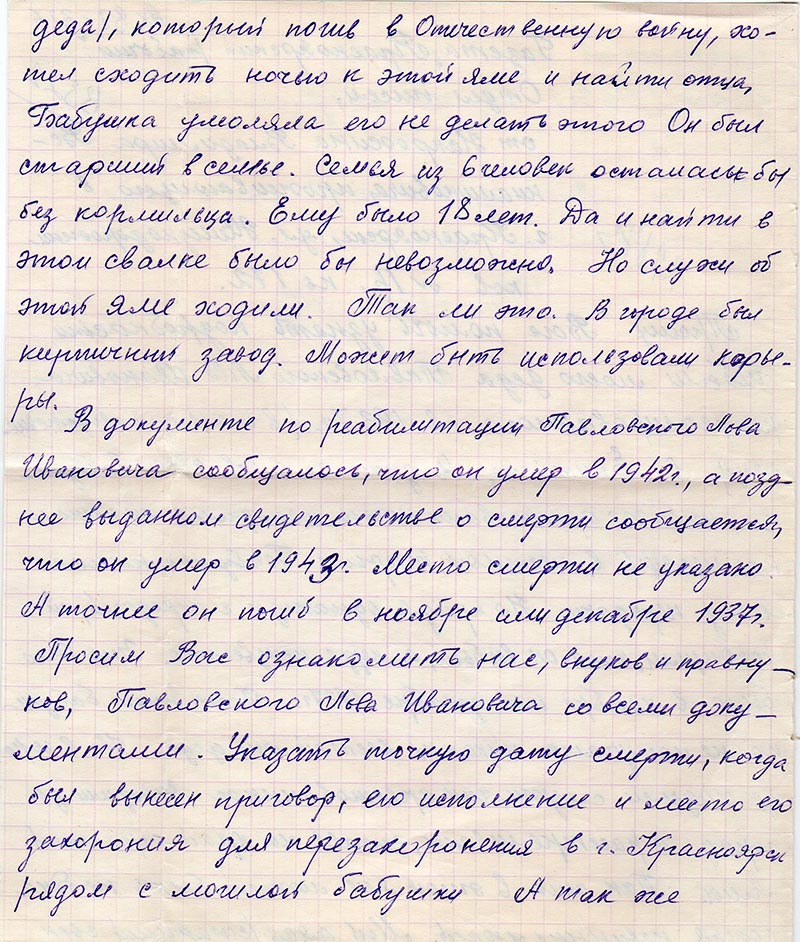 деда/, который погив в Отечественную войну, хо-
тел сходить ночью к этой яме и найти отца,
Бабушка умоляла его не делать этого Он был
старший в семье. Семья из 6 человек осталась бы
без кормильца. Ему было 18 лет. Да и найти в
этой свалке было бы невозможно. Но слухи об
этой яме ходили. Так ли это. В городе был
кирпичный завод. Может быть использовали карье-
ры.
В документе по реабилитации Павловского Льва
Ивановича сообщалось, что он умер в 1942г., а позд-
нее выданном свидетельстве о смерти сообщается,
что он умер в 1943г. Место смерти не указано.
А точнее он погиб в ноябре или декабре 1937г.
Просим Вас ознакомить нас, внуков и правну-
ков, Павловского Льва Ивановича со всеми доку-
ментами. Указать точную дату смерти, когда
был вынесен приговор, его исполнение и место его
захорония для перезахоронения в г. Красноярск
рядом с могилой бабушки А так же